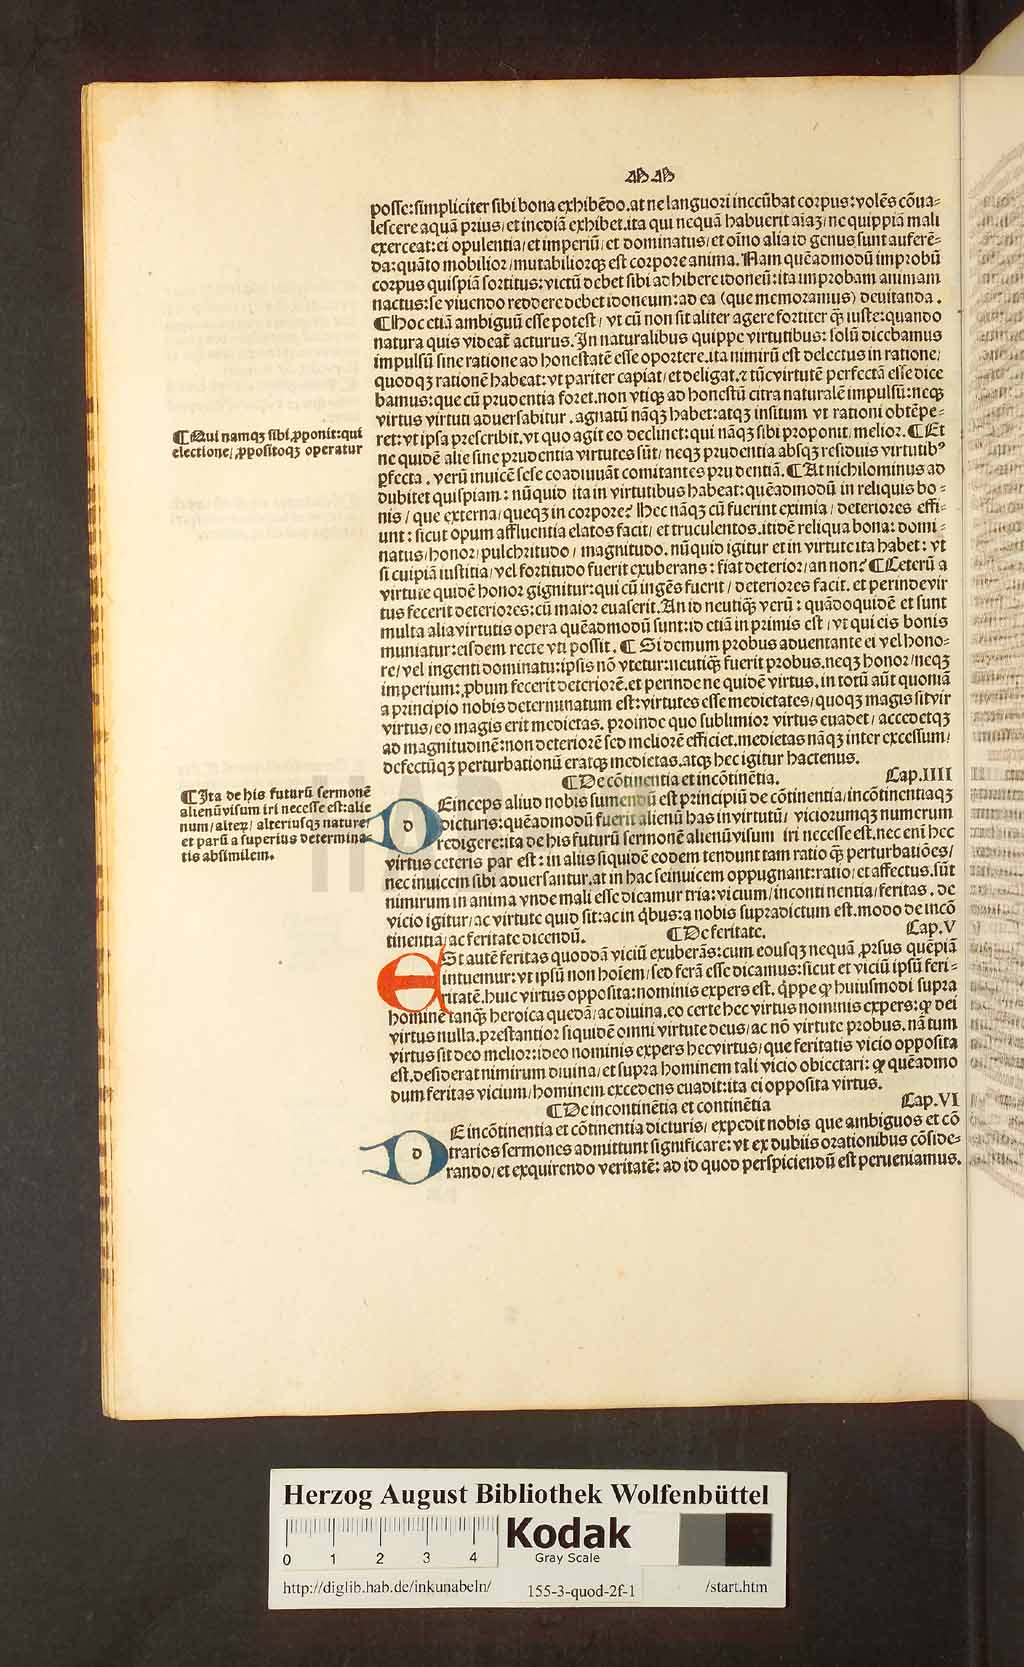 AB AB
posse: simpliciter sibi bona exhibēdo. at ne languori inccūbat corpus: volēs cōua-
lescere aquā prius/ et incdiā exhibet. ita qui nequā habuerit aīaꝫ/ ne quippiā mali
exerceat: ei opulentia/ et imperiū/ et dominatus/ et oīno alia id genus sunt auferē-
da: quāto mobilior/ mutabiliorqꝫ est corpore anima. Nam quēadmodū improbū
corpus quispiā sortitus: victū debet sibi adhibere idoneū: ita improbam animam
nactus: se viuendo reddere debet idoneum: ad ea (que memoramus) deuitanda.
¶Hoc etiā ambiguū esse potest/ vt cū non sit aliter agere fortiter q̄ꝫ iuste: quando
natura quis videat̄ acturus. In naturalibus quippe virtutibus: solū dicebamus
impulsū sine ratione ad honestatē esse oportere. ita nimirū est delectus in ratione/
quodqꝫ rationē habeat: vt pariter capiat/ et deligat. ⁊ tūc virtutē perfectā esse dice
bamus: que cū prudentia foret. non vtiqꝫ ad honestū citra naturalē impulsū: neqꝫ
virtus virtuti aduersabitur. agnatū nāqꝫ habet: atqꝫ insitum vt rationi obtēpe-
ret: vt ipsa prescribit. vt quo agit eo declinet: qui nāqꝫ sibi proponit/ melior. ¶Et
¶Qui namqꝫ sibi ꝓponit: qui
electione/ ꝓpositoqꝫ operatur
ne quidē alie sine prudentia virtutes sūt/ neqꝫ prudentia absqꝫ residuis virtutibꝰ
ꝑfecta. verū inuicē sese coadiuuāt comitantes prudentiā. ¶At nichilominus ad
dubitet quispiam: nūquid ita in virtutibus habeat: quēadmodū in reliquis bo-
nis/ que externa/ queqꝫ in corpore? Hec nāqꝫ cū fuerint eximia/ deteriores effi-
unt: sicut opum affluentia elatos facit/ et truculentos. itidē reliqua bona: domi-
natus/ honor/ pulchritudo/ magnitudo. nūquid igitur et in virtute ita habet: vt
si cuipiā iustitia/ vel fortitudo fuerit exuberans: fiat deterior/ an non? ¶Ceterū a
virtute quidē honor gignitur: qui cū ingēs fuerit/ deteriores facit. et perinde vir
tus fecerit deteriores: cū maior euaserit. An id neutiq̄ꝫ verū: quādoquidē et sunt
multa alia virtutis opera quēadmodū sunt: id etiā in primis est/ vt qui eis bonis
muniatur: eisdem recte vti possit. ¶Si demum probus aduentante ei vel hono-
re/ vel ingenti dominatu: ipsis nō vtetur: neutiq̄ꝫ fuerit probus. neqꝫ honor/ neqꝫ
imperium: ꝓbum fecerit deteriorē. et perinde ne quidē virtus. in totū aūt quoniā
a principio nobis determinatum est: virtutes esse medietates/ quoqꝫ magis sit vir
virtus/ eo magis erit medietas. proinde quo sublimior virtus euadet/ accedetqꝫ
ad magnitudinē: non deteriorē sed meliorē efficiet. medietas nāqꝫ inter excessum/
defectūqꝫ perturbationū eratqꝫ medietas. atqꝫ hec igitur hactenus.
¶De cōtinentia et incōtinētia. Cap. IIII
¶Ita de his futurū sermonē
alienū visum iri necesse est: alie
num/ alteꝝ/ alteriusqꝫ nature/
et parū a superius determina-
tis absimilem.
DEinceps aliud nobis sumendū est principiū de cōtinentia/ incōtinentiaqꝫ
dicturis: quēadmodū fuerit alienū has in virtutū/ viciorumqꝫ numerum
redigere: ita de his futurū sermonē alienū visum iri necesse est. nec enī hec
virtus ceteris par est: in aliis siquidē eodem tendunt tam ratio q̄ꝫ perturbatiōes/
nec inuicem sibi aduersantur. at in hac se inuicem oppugnant: ratio/ et affectus. sūt
nimirum in anima vnde mali esse dicamur tria: vicium/ incontinentia/ feritas. de
vicio igitur/ ac virtute quid sit: ac in q̇bus: a nobis supradictum est. modo de incō
tinentia/ ac feritate dicendū. ¶De feritate. Cap. V
ESt autē feritas quoddā viciū exuberās: cum eousqꝫ nequā ꝓrsus quēpiā
intuemur: vt ipsū non hoīem/ sed ferā esse dicamus: sicut et viciū ipsū feri-
ritatē. huic virtus opposita: nominis expers est. q̇ppe ꝙ huiusmodi supra
hominē tanq̄ꝫ heroica quedā/ ac diuina. eo certe hec virtus nominis expers: ꝙ dei
virtus nulla. prestantior siquidē omni virtute deus/ ac nō virtute probus. nā tum
virtus sit deo melior: ideo nominis expers hec virtus/ que feritatis vicio opposita
est. desiderat nimirum diuina/ et supra hominem tali vicio obiectari: ꝙ quēadmo
dum feritas vicium/ hominem excedens euadit: ita ei opposita virtus.
¶De incontinētia et continētia Cap. VI
DE incōtinentia et cōtinentia dicturis/ expedit nobis que ambiguos et cō
trarios sermones admittunt significare: vt ex dubiis orationibus cōside-
rando/ et exquirendo veritatē: ad id quod perspiciendū est perueniamus.
HAB
Herzog August Bibliothek Wolfenbüttel
0 1 2 3 4
Kodak
Gray Scale
http://diglib.hab.de/inkunabeln/ 155-3-quod-2f-1 /start.htm